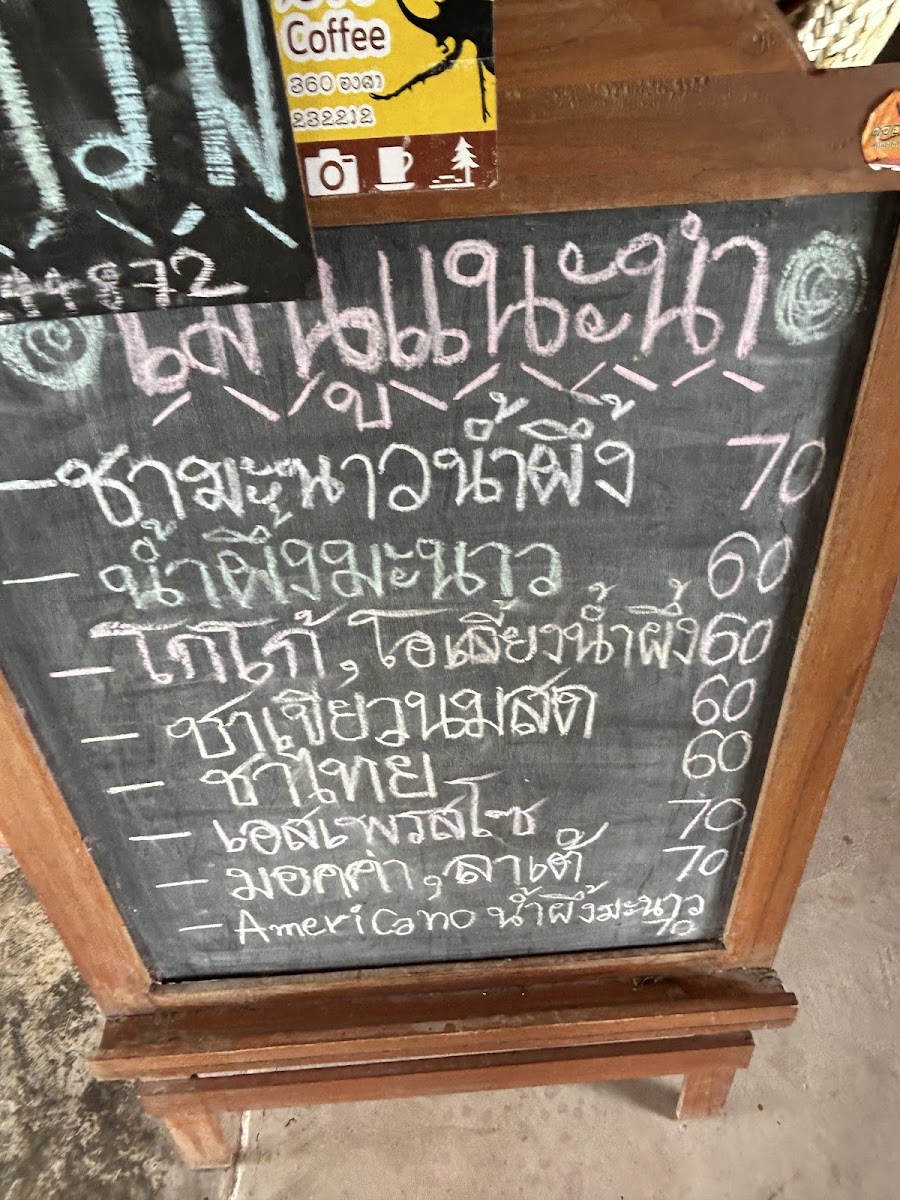 Coffee
360 องศา
232212
44872
เมนูแนะนำ
- ชามะนาวน้ำผึ้ง 70
- น้ำผึ้งมะนาว 60
- โกโก้, โอเลี้ยงน้ำผึ้ง 60
- ชาเขียวนมสด 60
- ชาไทย 60
- เอสเพรสโซ 70
- มอคค่า, ลาเต้ 70
- Americano น้ำผึ้งมะนาว
70